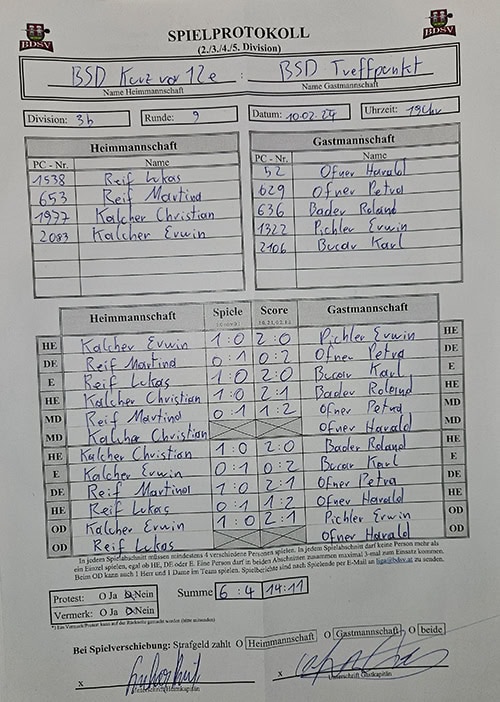 BDSV
SPIELPROTOKOLL
BDSV
(2./3./4./5. Division)
BSD Kurz vor 12e : BSD Treffpunkt
Name Heimmannschaft Name Gastmannschaft
Division: 3b Runde: 9 Datum: 10.02.24 Uhrzeit: 19Uhr
Heimmannschaft Gastmannschaft
PC - Nr. Name PC - Nr. Name
1538 Reif Lukas 52 Ofner Harald
653 Reif Martina 629 Ofner Petra
1977 Kalcher Christian 636 Bader Roland
2083 Kalcher Erwin 1322 Pichler Erwin
2106 Bucar Karl
Heimmannschaft Spiele Score Gastmannschaft
HE Kalcher Erwin 1:0 2:0 Pichler Erwin HE
DE Reif Martina 0:1 0:2 Ofner Petra DE
E Reif Lukas 1:0 2:0 Bucar Karl E
HE Kalcher Christian 1:0 2:1 Bader Roland HE
MD Reif Martina 0:1 1:2 Ofner Petra MD
MD Kalcher Christian Ofner Harald MD
HE Kalcher Christian 1:0 2:0 Bader Roland HE
E Kalcher Erwin 0:1 0:2 Bucar Karl E
DE Reif Martina 1:0 2:1 Ofner Petra DE
HE Reif Lukas 0:1 1:2 Ofner Harald HE
OD Kalcher Erwin 1:0 2:1 Pichler Erwin OD
OD Reif Lukas Ofner Harald OD
In jedem Spielabschnitt müssen mindestens 4 verschiedene Personen spielen. In jedem Spielabschnitt darf keine Person mehr als
ein Einzel spielen, egal ob HE, DE oder E. Eine Person darf in beiden Abschnitten zusammen maximal 3-mal zum Einsatz kommen.
Beim OD kann auch 1 Herr und 1 Dame im Team spielen. Spielberichte sind nach Spielende per E-Mail an liga@bdsv.at zu senden.
Protest: O Ja O Nein Summe 6 : 4 14:11
Vermerk: O Ja O Nein
Bei Spielverschiebung: Strafgeld zahlt O Heimmannschaft O Gastmannschaft O beide
x x
Unterschrift Heimkapitän Unterschrift Gastkapitän